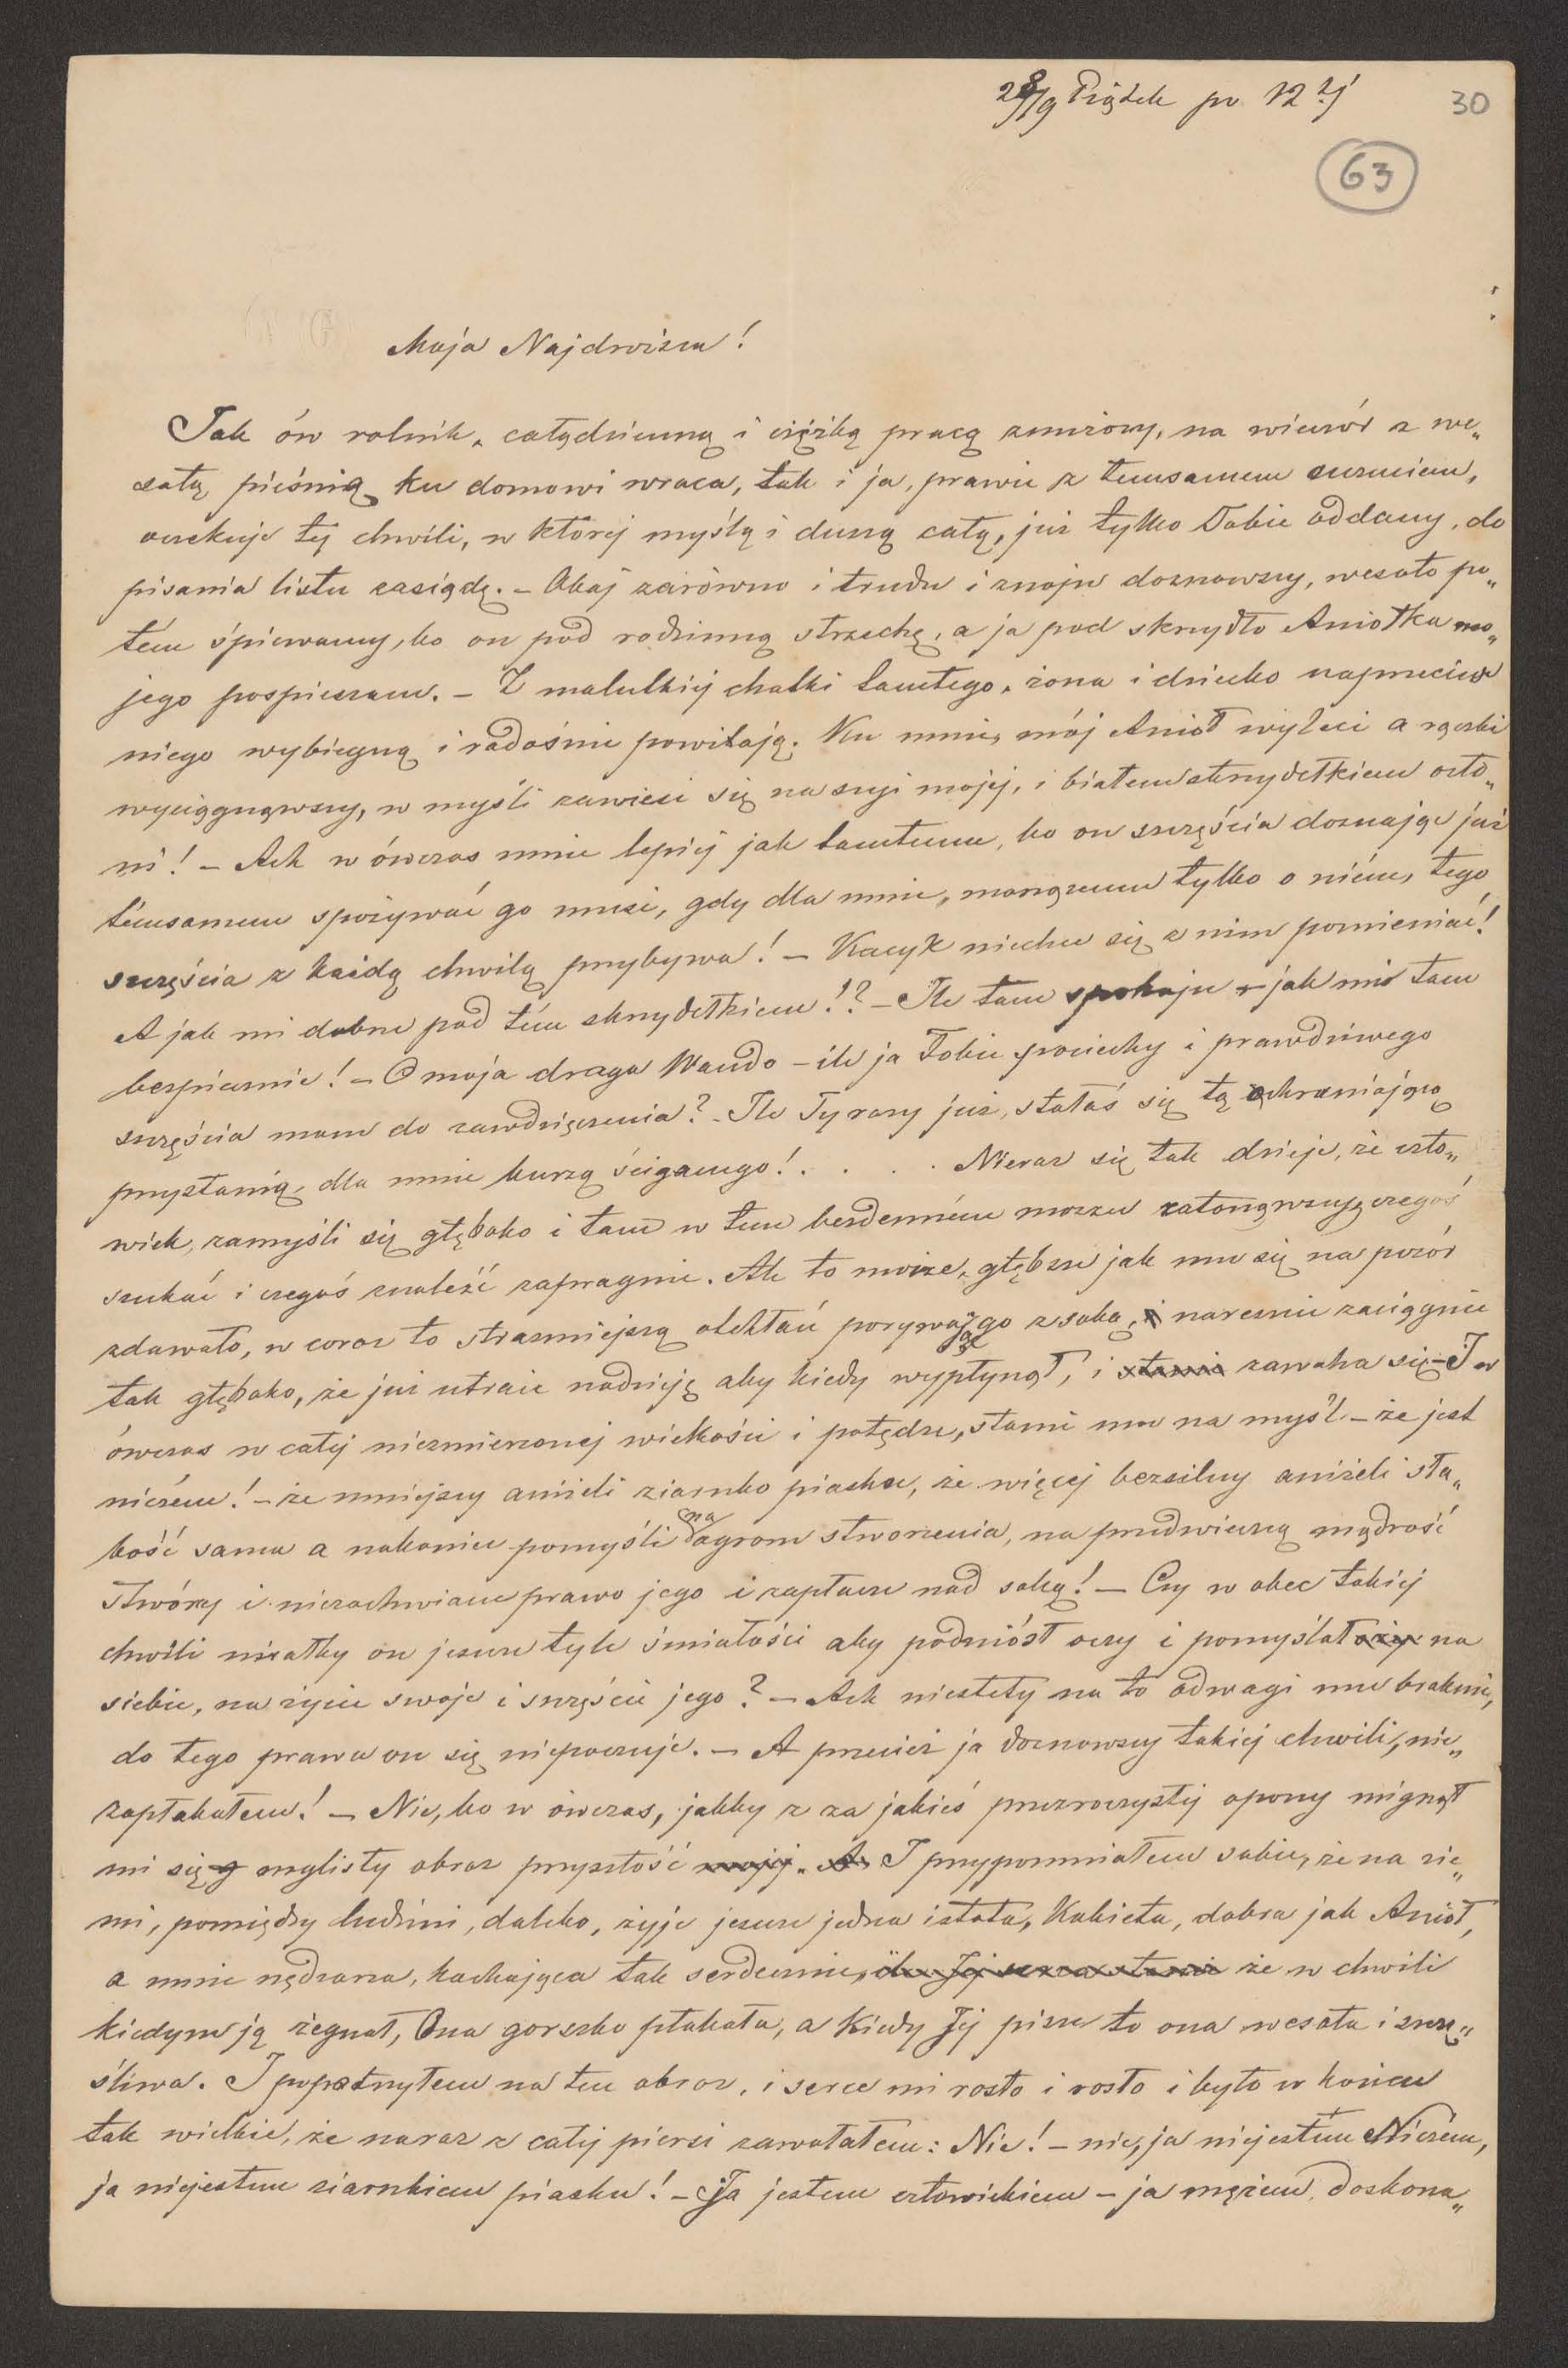 28/9 Piątek po 12ej
30
63
Moja Najdroższa!
Jak ów rolnik, całądzienną i ciężką pracą znużony, na wieczór z we„
sołą pieśnią ku domowi wraca, tak i ja, prawie z temsamem uczuciem,
oczekuję tej chwili, w której myślą i duszą całą, już tylko Tobie oddany, do
pisania listu zasiądę. – Obaj zarówno i trudu i znoju doznawszy, wesoło po„
tém śpiewamy, bo on pod rodzinną strzechę, a ja pod skrzydło Aniołka mo„
jego pospieszam. – Z malutkiej chatki tamtego, żona i dziecko naprzeciw
niego wybiegną i radośnie powitają. Ku mnie, mój Anioł wyleci a rączki
wyciągnąwszy, w myśli zawiesi się na szyi mojej, i białem skrzydełkiem osło„
ni! – Ach w ówczas mnie lepiej jak tamtemu, bo on szczęścia doznając już
témsamem spożywać go musi, gdy dla mnie, marzącemu tylko o niém, tego
szczęścia z każdą chwilą przybywa! – Kacyk niechce się z nim pomieniać!
A jak mi dobrze pod tém skrzydełkiem!? – Ile tam spokoju – jak mi tam
bezpiecznie! – O moja droga Wando – ile ja Tobie pociechy i prawdziwego
szczęścia mam do zawdzięczenia? – Ile Ty razy już, stałaś się tą ochraniającą
przystanią, dla mnie burzą ściganego! . . . . Nieraz się tak dzieje, że czło„
wiek, zamyśli się głęboko i tam w tem bezdenném morzu zatonąwszy, czegoś
szukać i czegoś znaleźć zapragnie. Ale to morze, głębsze jak mu się na pozór
zdawało, w coraz to straszniejszą otchłań porywając go z sobą, i nareszcie zaciągnie
tak głęboko, że już utraci nadzieję aby kiedy wypłynął, i stanie zawaha się – I w
ówczas w całej niezmierzonej wielkości i potędze, stanie mu na myśl – że jest
niczém! – że mniejszy aniżeli ziarnko piasku, że więcej bezsilny aniżeli sła„
bość sama a nakoniec pomyśli na ogrom stworzenia, na przedwieczną mądrość
Stwórcy i niezachwiane prawo jego i zapłacze nad sobą! – Czy w obec takiej
chwili miałby on jeszcze tyle śmiałości aby podniósł oczy i pomyślał na
siebie, na życie swoje i szczęście jego? – Ach niestety na to odwagi mu braknie,
do tego prawa on się niepoczuje. – A przecież ja doznawszy takiej chwili, nie„
zapłakałem! – Nie, bo w ówczas, jakby z za jakiéś przezroczystej opony mignął
mi się mglisty obraz przyszłość mojej. A I przypomniałem sobie, że na zie„
mi, pomiędzy ludźmi, daleko, żyje jeszcze jedna istota, Kobieta, dobra jak Anioł,
a mnie nędzarza, kochająca tak serdecznie, że w chwili
kiedym ją żegnał, Ona gorzko płakała, a kiedy Jej piszę to ona wesoła i szczę„
śliwa. I popatrzyłem na ten obraz, i serce mi rosło i rosło i było w końcu
tak wielkie, że naraz z całej piersi zawołałem: Nie! – nie, ja niejestem Niczém,
ja niejestem ziarnkiem piasku! – Ja jestem człowiekiem – ja mężem, doskona„